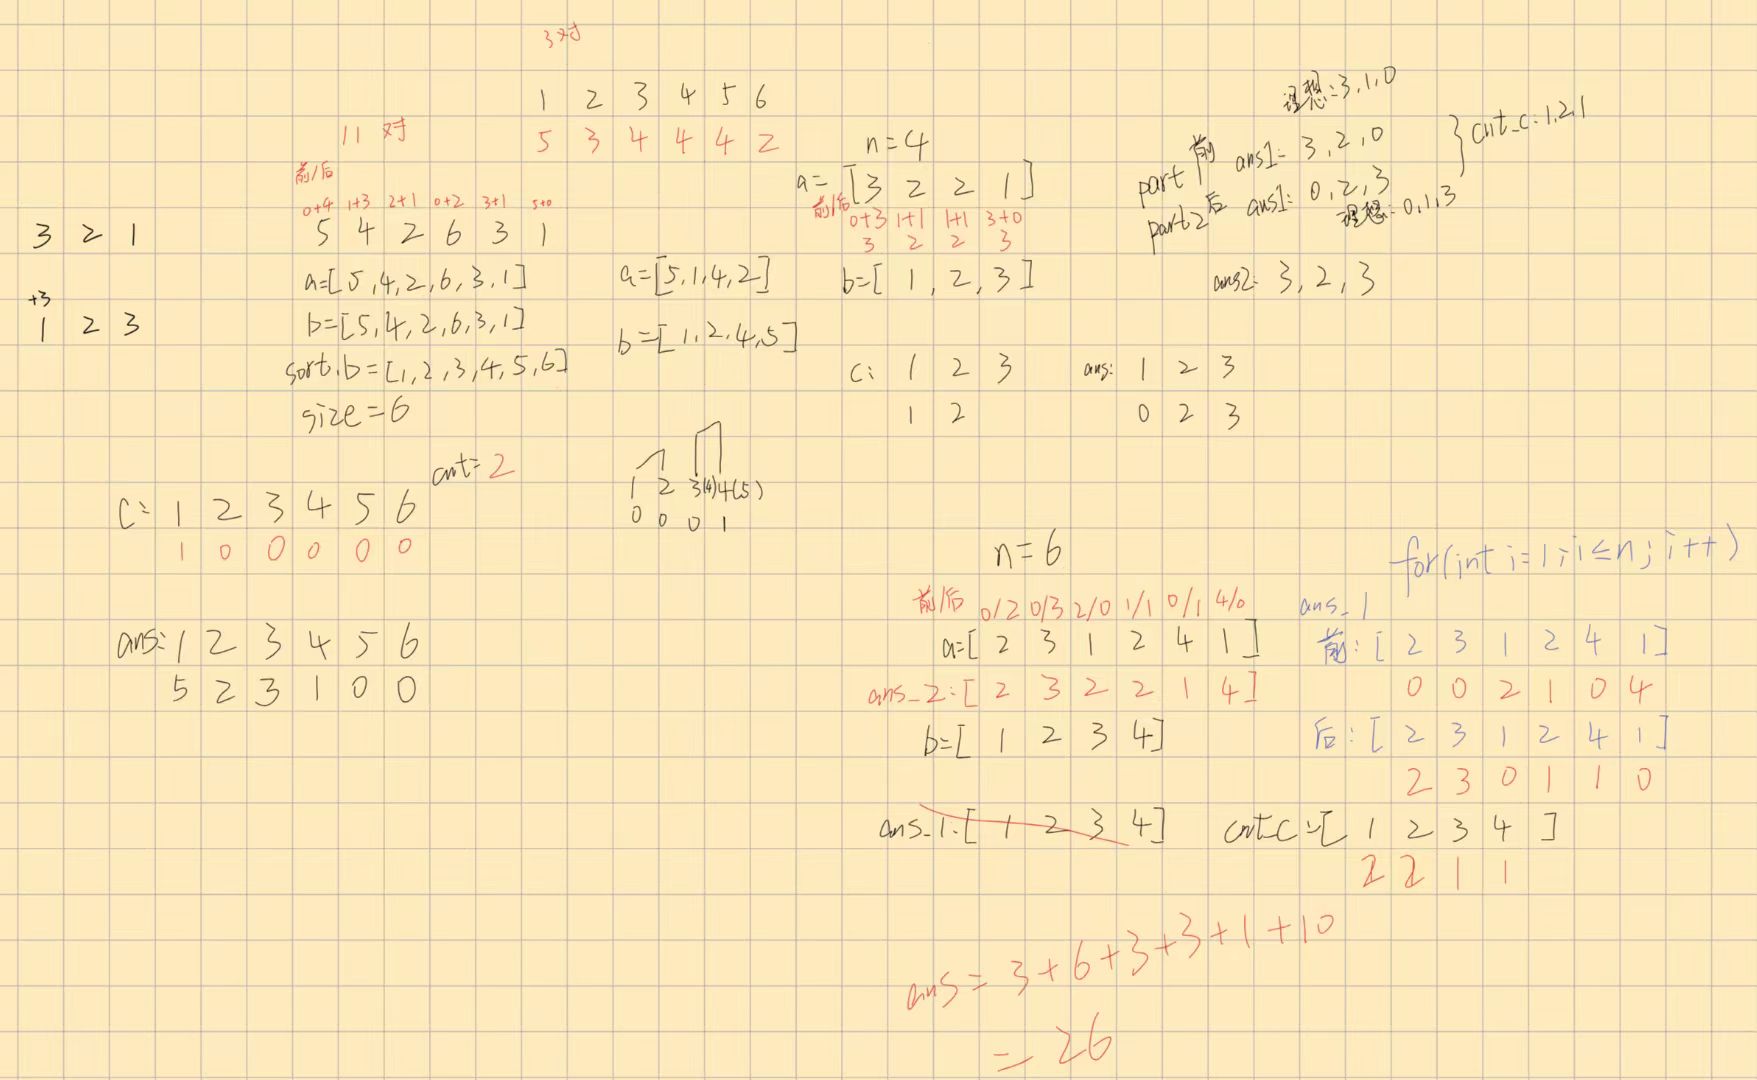 3对
1 2 3 4 5 6
5 3 4 4 4 2
11 对
前/后
0+4 1+3 2+1 0+2 3+1 5+0
5 4 2 6 3 1
a=[5,4,2,6,3,1]
b=[5,4,2,6,3,1]
sort.b=[1,2,3,4,5,6]
size=6
3 2 1
+3
1 2 3
cnt=2
C: 1 2 3 4 5 6
1 0 0 0 0 0
ans: 1 2 3 4 5 6
5 2 3 1 0 0
a=[5,1,4,2]
b=[1,2,4,5]
1 2 3(4) 4(5)
0 0 0 1
n=4
a=[3 2 2 1]
前/后 0+3 1+1 1+1 3+0
3 2 2 3
b=[1,2,3]
C: 1 2 3
1 2
ans: 1 2 3
0 2 3
理想:3,1,0
part1 前 ans1: 3,2,0
part2 后 ans1: 0,2,3
理想: 0,1,3
} cnt_c:1,2,1
ans2: 3,2,3
n=6
前/后 0/2 0/3 2/0 1/1 0/1 4/0
a=[2 3 1 2 4 1]
ans_2:[2 3 2 2 1 4]
b=[1 2 3 4]
ans_1:[1 2 3 4]
for(int i=1;i≤n;i++)
ans_1
前:[2 3 1 2 4 1]
0 0 2 1 0 4
后:[2 3 1 2 4 1]
2 3 0 1 1 0
cnt_C:[1 2 3 4]
2 2 1 1
ans=3+6+3+3+1+10
=26